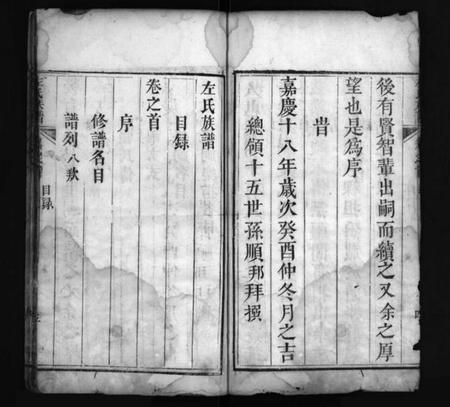 後有賢智輩出嗣而續之又余之厚
望也是為序
旹
嘉慶十八年歲次癸酉仲冬月之吉
總領十五世孫順邦拜撰
左氏族譜
目錄
卷之首
序
修譜名目
譜列八欵
目錄